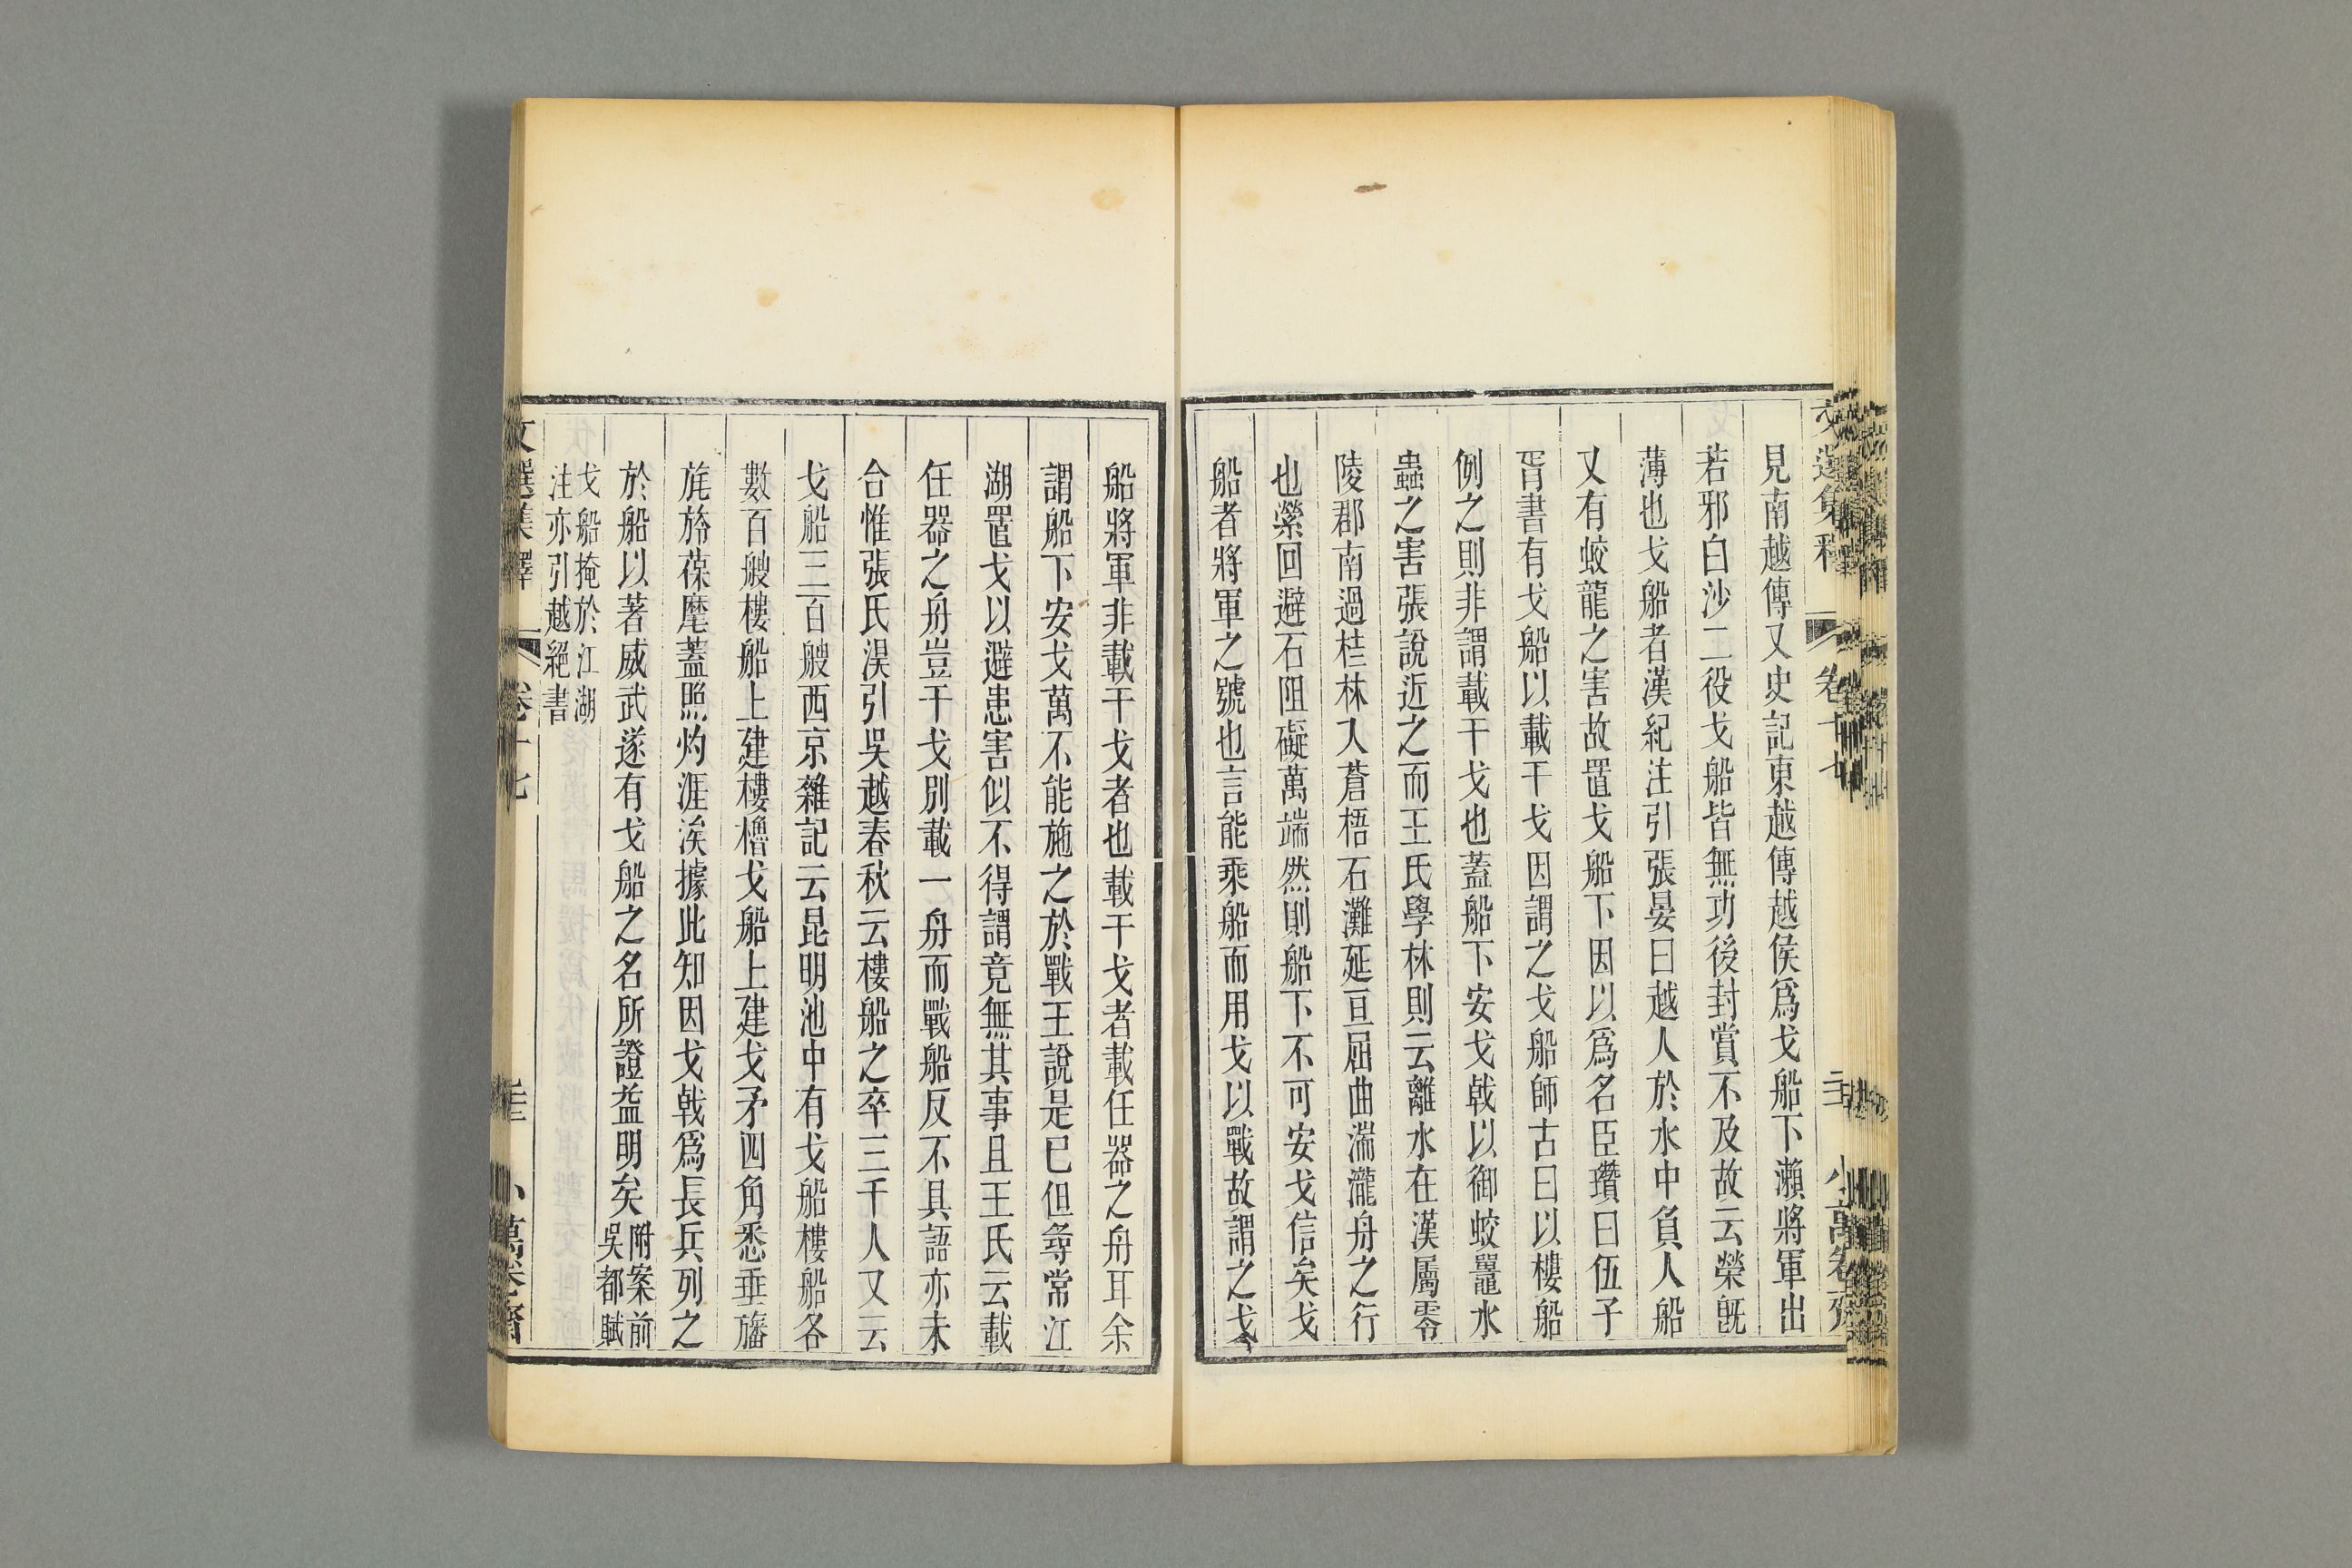 文選集釋 卷十七 小萬卷齋
見南越傳又史記東越傳越侯爲戈船下瀨將軍出
若邪白沙二役戈船皆無功後封賞不及故云榮旣
薄也戈船者漢紀注引張晏曰越人於水中負人船
又有蛟龍之害故置戈船下因以爲名臣瓚曰伍子
胥書有戈船以載干戈因謂之戈船師古曰以樓船
例之則非謂載干戈也蓋船下安戈戟以御蛟鼉水
蟲之害張說近之而王氏學林則云離水在漢屬零
陵郡南過桂林入蒼梧石灘延亘屈曲湍瀧舟之行
也縈回避石阻礙萬端然則船下不可安戈信矣戈
船者將軍之號也言能乘船而用戈以戰故謂之戈
船將軍非載干戈者也載干戈者載任器之舟耳余
謂船下安戈萬不能施之於戰王說是已但尋常江
湖置戈以避患害似不得謂竟無其事且王氏云載
任器之舟豈干戈別載一舟而戰船反不具語亦未
合惟張氏淏引吳越春秋云樓船之卒三千人又云
戈船三百艘西京雜記云昆明池中有戈船樓船各
數百艘樓船上建樓櫓戈船上建戈矛四角悉垂旛
旄旍葆麾蓋照灼涯涘據此知因戈戟爲長兵列之
於船以著威武遂有戈船之名所證益明矣附案前
吳都賦
戈船掩於江湖
注亦引越絕書
文選集釋 卷十七 小萬卷齋